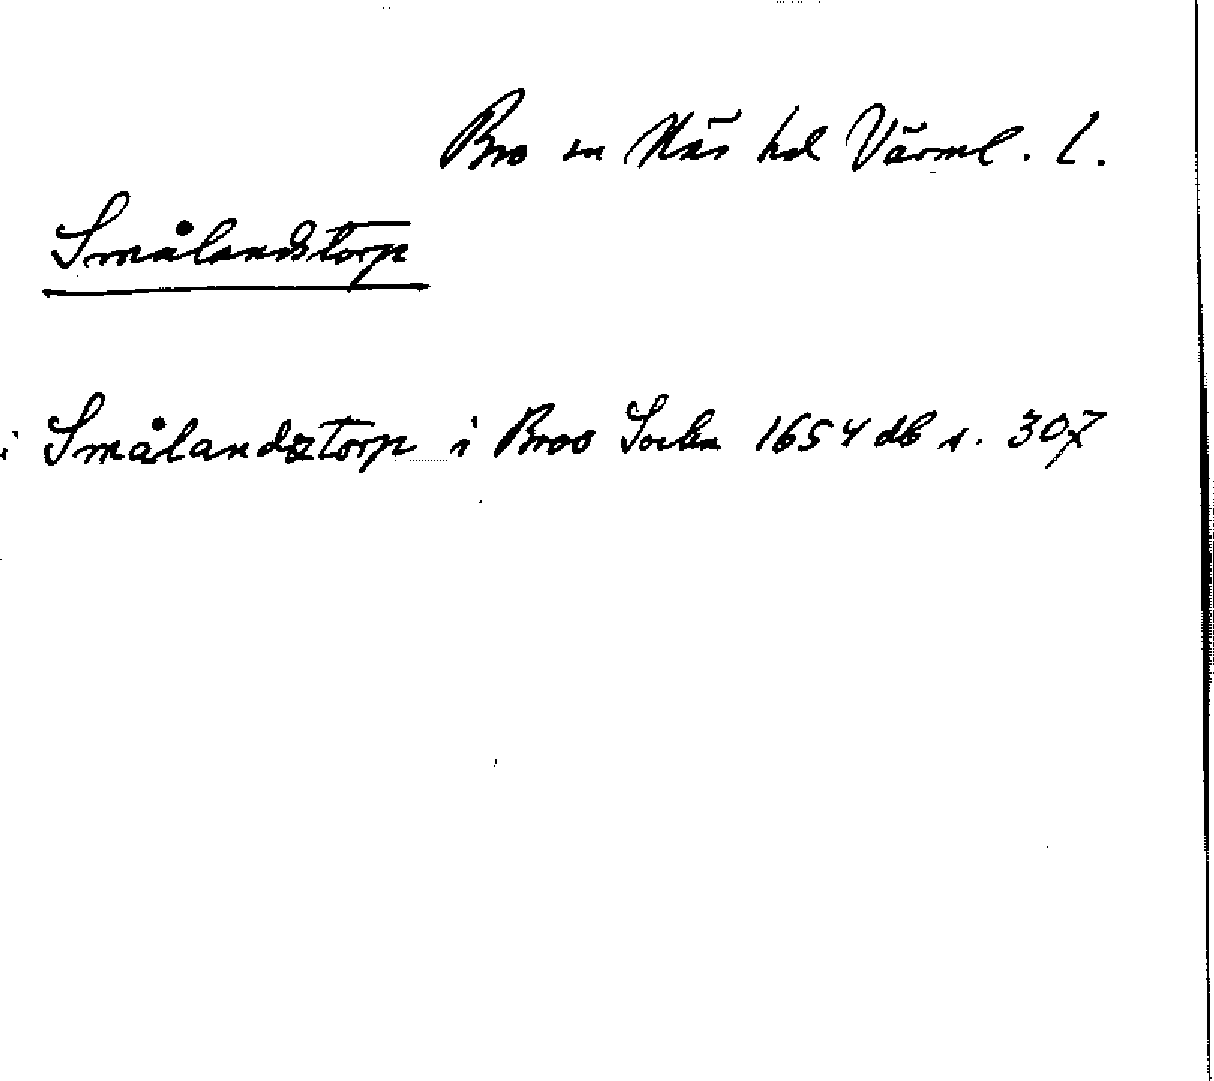 Bro sn Näs hd Värml. L.
Smålandstorp
i Smålandztorp i Broo Sockn 1654 db s. 307